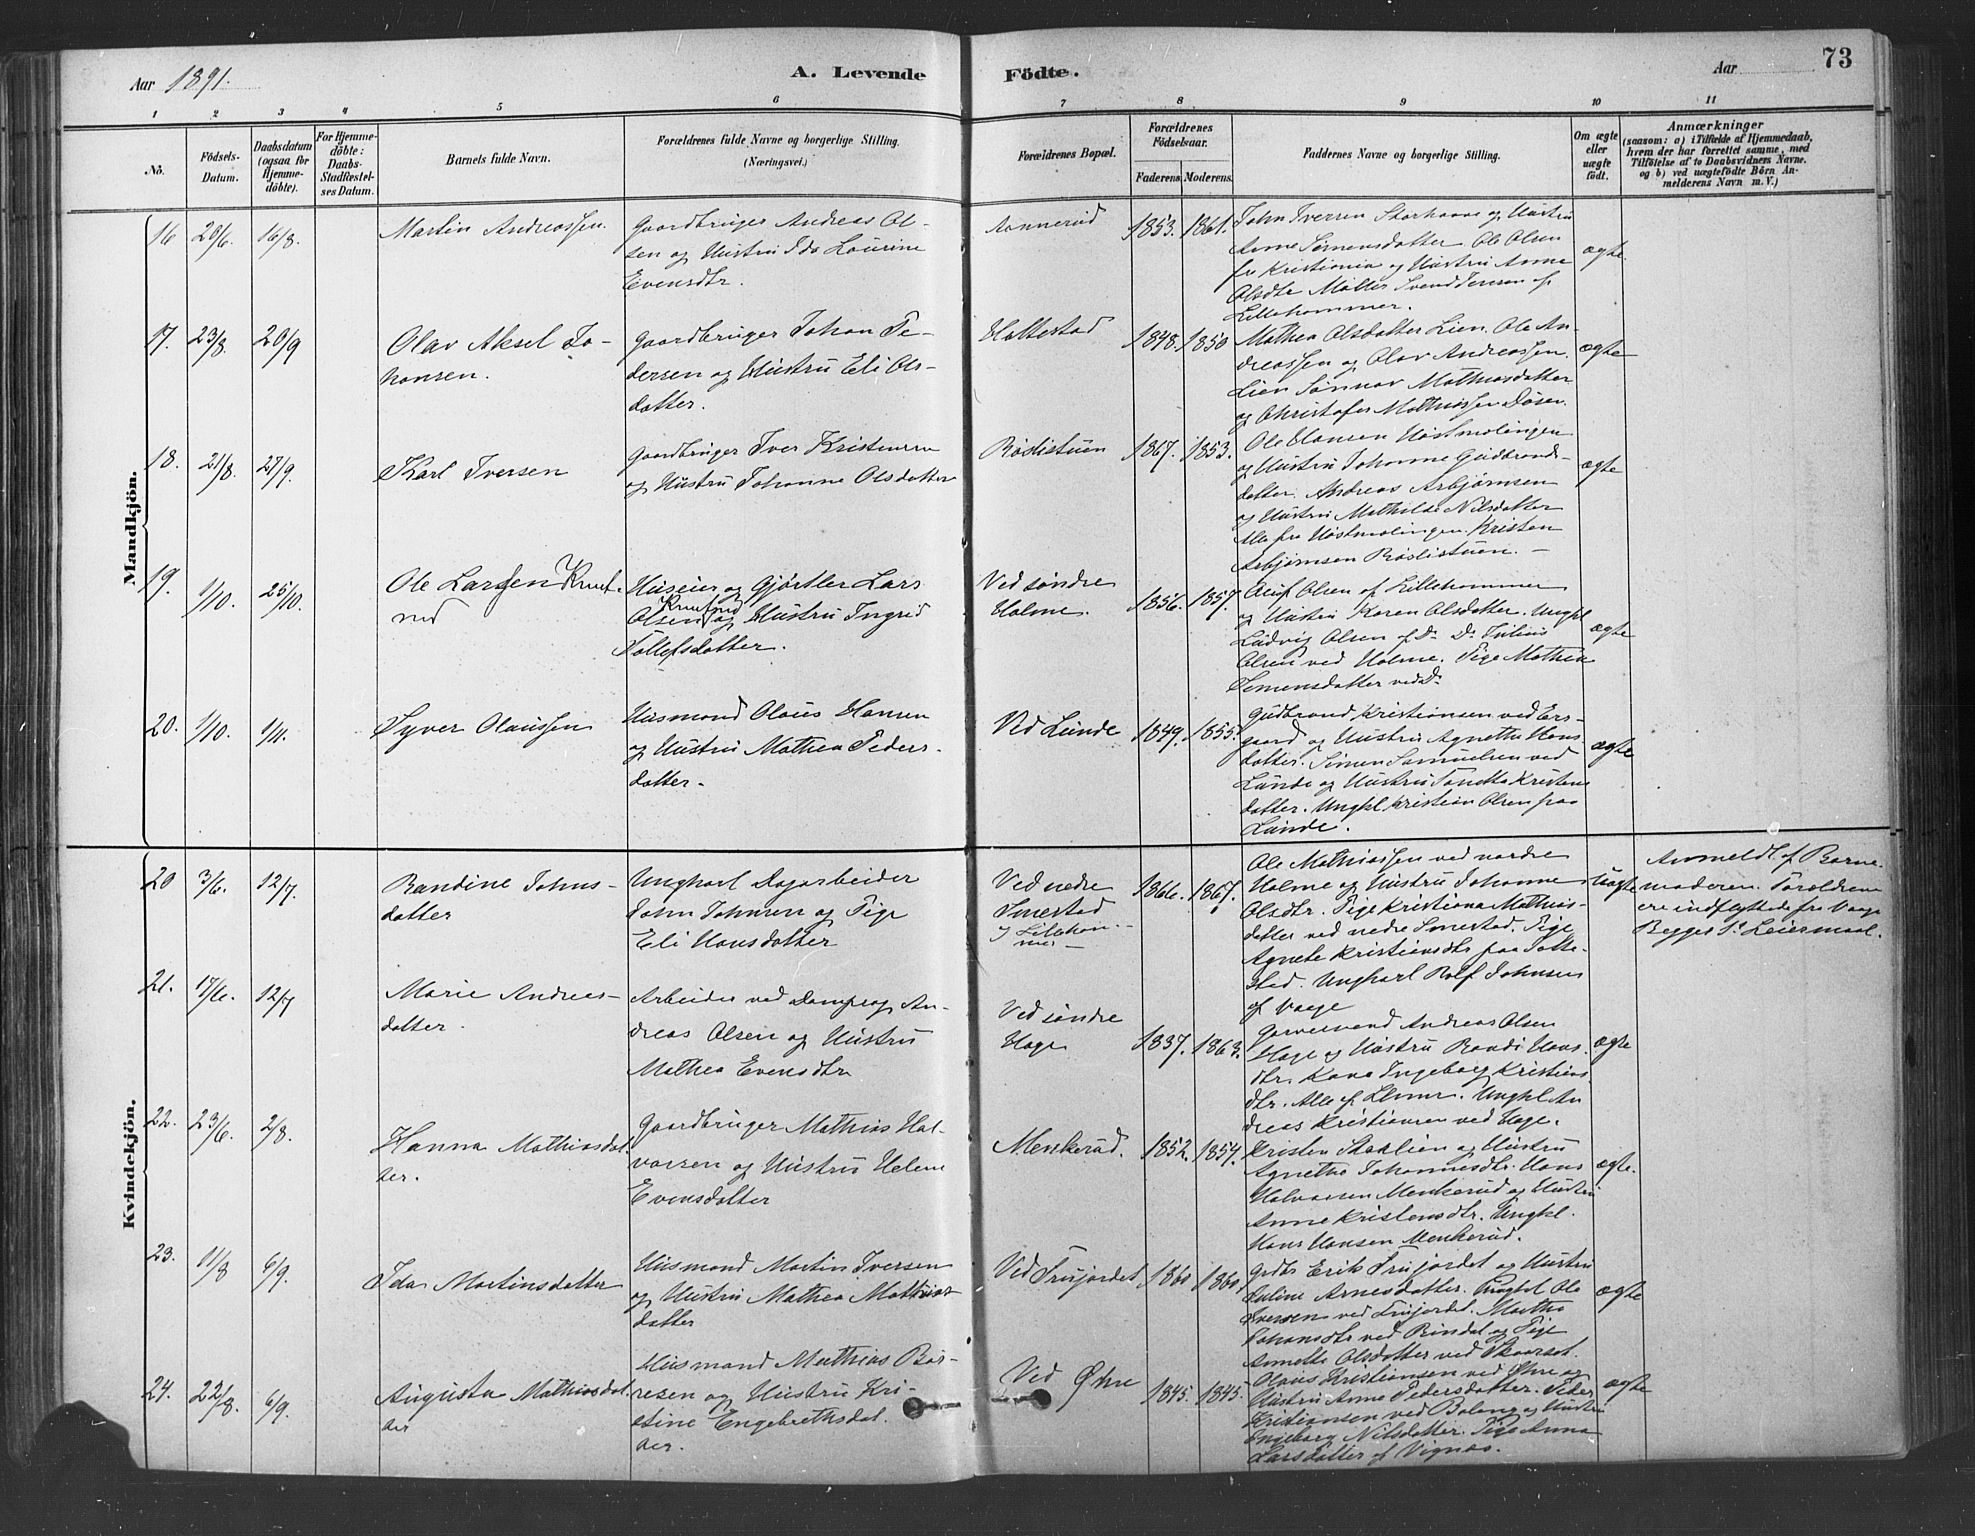 Aar 1891.
A. Levende Födte.
Aar
73
1 2 3 4 5 6 7 8 9 10 11
No.
Födsels-Datum.
Daabsdatum (ogsaa for Hjemme-döbte).
For Hjemme-döbte: Daabs-Stadfæstel-ses Datum.
Barnets fulde Navn.
Forældrenes fulde Navne og borgerlige Stilling. (Næringsvei.)
Forældrenes Bopæl.
Forældrenes Födselsaar.
Faderens. Moderens.
Faddernes Navne og borgerlige Stilling.
Om ægte eller uægte födt.
Anmærkninger
(saasom: a) i Tilfælde af Hjemmedaab, hvem der har forrettet samme, med Tilföielse af to Daabsvidners Navne, og b) ved uægtefödte Börn An-melderens Navn m. V.)
Mandkjön.
16 20/6. 16/8.
Martin Andreassen.
Gaardbruger Andreas Ol-
sen og Hustru Ida Lovine
Evensdtr.
Aannerud
1853. 1861.
John Iversen Storhaave og Hustru
Anne Simensdatter. Ole Olsen
fra Kristiania og Hustru Anne
Olsdtr
Lillehammer.
ægte.
17. 23/8. 20/9
Olav Aksel Jo-
hansen.
Gaardbruger Johan Pe-
dersen og Hustru Eli Ols-
datter.
Hattestad
1848. 1850
Mathea Olsdatter Lien. Ole An-
dreassen og Olav Andreassen
Lien Sønnav Mathiasdatter
og Christofer Mathiassen Døsen.
ægte
18. 21/8. 27/9.
Karl Iversen
Gaardbruger Iver Kristensen
og Hustru Johanne Olsdatter
Røslistuen
1867. 1853.
Ole Hansen Høstmælingen
og Hustru Johanne Gudbrands-
datter. Andreas Arbjørnsen
og Hustru Mathilde Nilsdatter
Alle fra Høstmælingen. Kristen
Arbjørnsen Røslistuen. —
ægte
19. 1/10. 25/10.
Ole Larssen Knuf-
rud
Huseier og Gjørtler Lars
Olsen Knufrud og Hustru Ingrid
Tollefsdatter.
Ved søndre
Holme.
1856. 1857.
Olsen af Lillehammer
og Hustru Karen Olsdatter. Ungkl
Ludvig Olsen af Do. Do. Julius
Olsen ved Holme. Pige Mathea
Simensdatter ved Do.
ægte
20. 1/10. 1/11.
Syver Olaussen
Husmand Olaus Hansen
og Hustru Mathea Peders-
datter.
Ved Lunde
1849. 1855.
Gudbrand Kristiansen ved Ers-
gaard og Hustru Agnethe Hans
datter. Simen Samuelsen ved
Lunde og Hustru Tonetta Kristens
datter. Ungkl. Kristian Olsen paa
Lunde.
ægte
Kvindekjön.
20 3/6. 12/7.
Randine Johns-
datter
Ungkarl Dagarbeider
John Johnsen og Pige
Eli Hansdatter
Ved nedre
Smestad
i Lilleham-
mer —
1866. 1867.
Ole Mathiassen ved nordre
Holme og Hustru Johanne
Olsdtr. Pige Kristiana Mathias-
datter ved nedre Smestad. Pige
Agnete Kristiansdtr paa Hatte-
stad. Ungkarl Rolf Johnsen
af Vaage
Uægte
Anmeldt af Barne-
moderen. Forældrene
ere indflyttede fra Vaage
Begges 1ste Leiermaal.
21. 17/6. 12/7
Marie Andreas-
datter.
Arbeider ved Dampsag An-
dreas Olsen og Hustru
Mathea Evensdtr
Ved søndre
Hage
1837. 1863.
Garversvend Andreas Olsen
Hage og Hustru Randi Hans-
dtr. Kone Ingeborg Kristians-
dtr. Alle af Lhmr. Ungkl. An
dreas Kristiansen ved Hage.
ægte
22. 23/6. 2/8.
Hanna Mathiasdat
ter.
Gaardbruger Mathias Hal-
vorsen og Hustru Helene
Evensdatter
Menkerud.
1852. 1854.
Kristen Skaklien og Hustru
Agnethe Johannesdtr. Hans
Halvorsen Menkerud og Hustru
Anne Kristensdtr. Ungkl.
Hans Hansen Menkerud.
ægte.
23. 11/8 6/9.
Ida Martinsdatter
Husmand Martin Iversen
og Hustru Mathea Mathias-
datter
Ved Trujordet
1860 1860
Grdbr Erik Trujordet og Hustru
Pauline Arnesdatter. Ungkl Ole
Iversen ved Trujordet. Marthe
Johansdtr ved Rindal og Pige
Annette Olsdatter ved Skaarset.
ægte
24. 22/8. 6/9.
Augusta Mathiasdat
ter
Husmand Mathias Bør-
resen og Hustru Kri-
stine Engebrethsdat.
ter.
Ved Øvre
1845. 1845.
Olaus Kristiansen ved Øvre og
Hustru Anne Pedersdatter. Peder
Kristiansen ved Balang og Hustru
Ingeborg Nilsdatter. Pige Anna
Larsdatter af Vignæs.
ægte